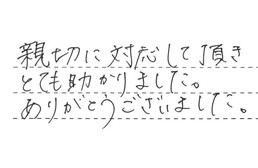 親切に対応して頂き
とても助かりました。
ありがとうございました。